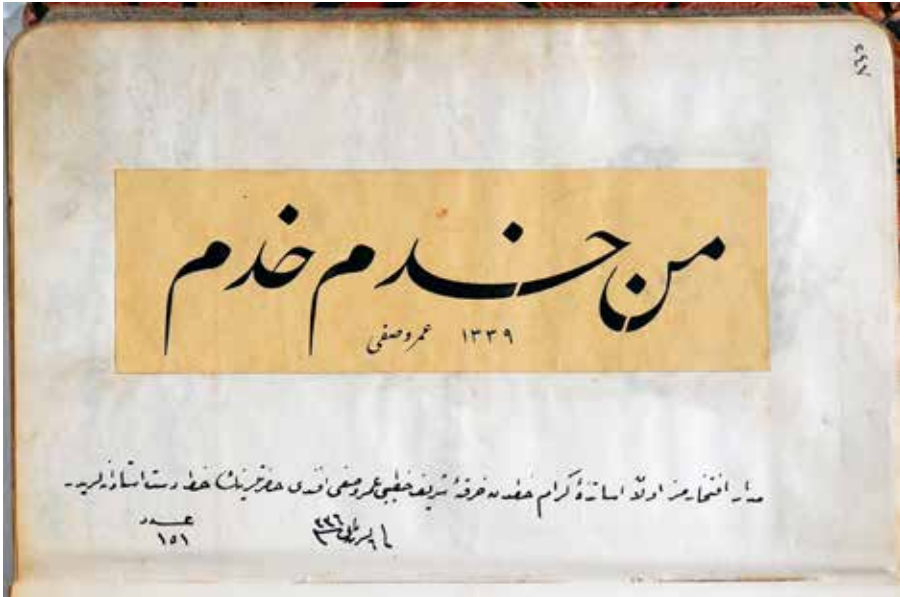 ٥٤٧
من خدم خدم
١٣٣٩ عمر وصفى
مدار افتخارمز اولان اساتذۀ كرام خطدن خرقۀ شريف خطيبى عمر وصفى افندى حضرتلرينك خط دست استادانه لريدر
عدد
١٥١